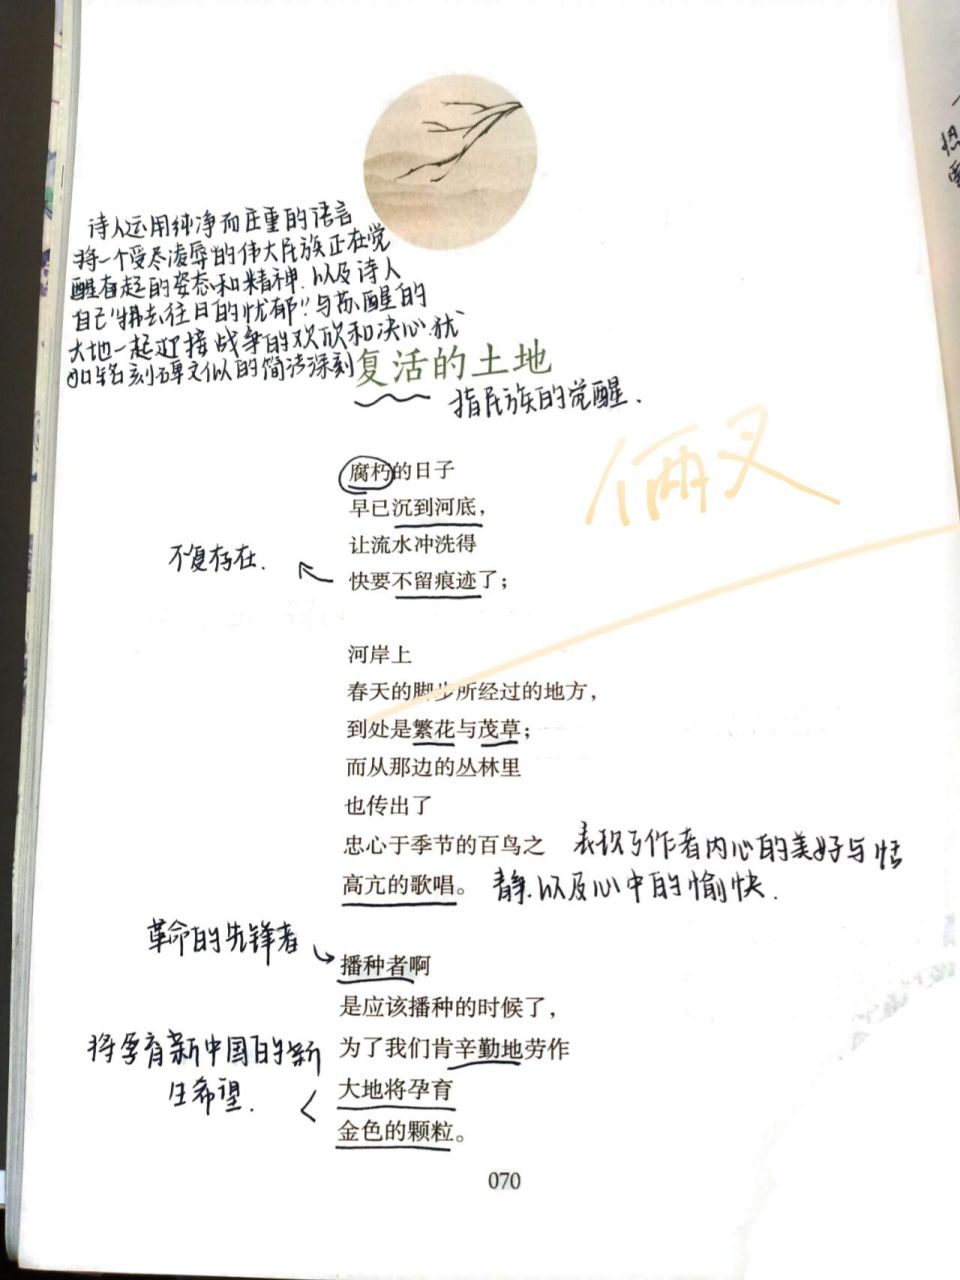 诗人运用纯净而庄重的语言
将一个受尽凌辱的伟大民族正在觉
醒奋起的姿态和精神.以及诗人
自己“拂去往日的忧郁”与苏醒的
大地一起迎接战争的欢欣和决心.犹
如铭刻碑文似的简洁深刻
复活的土地
指民族的觉醒.
俩又
腐朽的日子
早已沉到河底,
让流水冲洗得
不复存在.
快要不留痕迹了;
河岸上
春天的脚步所经过的地方,
到处是繁花与茂草;
而从那边的丛林里
也传出了
忠心于季节的百鸟之
高亢的歌唱。
表现了作者内心的美好与恬
静.以及心中的愉快.
革命的先锋者
播种者啊
是应该播种的时候了,
为了我们肯辛勤地劳作
将孕育新中国的新
生希望.
大地将孕育
金色的颗粒。
070